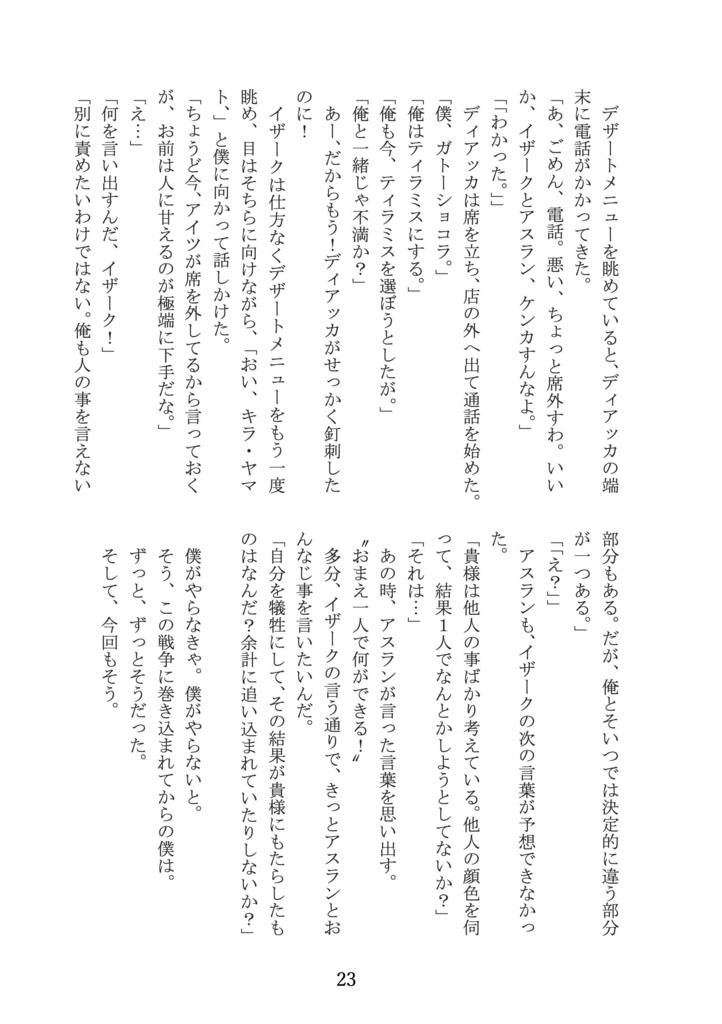 デザートメニューを眺めていると、ディアッカの端
末に電話がかかってきた。
「あ、ごめん、電話。悪い、ちょっと席外すわ。いい
か、イザークとアスラン、ケンカすんなよ。」
「「わかった。」」
ディアッカは席を立ち、店の外へ出て通話を始めた。
「僕、ガトーショコラ。」
「俺はティラミスにする。」
「俺も今、ティラミスを選ぼうとしたが。」
「俺と一緒じゃ不満か？」
あー、だからもう！ディアッカがせっかく釘刺した
のに！
イザークは仕方なくデザートメニューをもう一度
眺め、目はそちらに向けながら、「おい、キラ・ヤマ
ト、」と僕に向かって話しかけた。
「ちょうど今、アイツが席を外してるから言っておく
が、お前は人に甘えるのが極端に下手だな。」
「え…」
「何を言い出すんだ、イザーク！」
「別に責めたいわけではない。俺も人の事を言えない
部分もある。だが、俺とそいつでは決定的に違う部分
が一つある。」
「「え？」」
アスランも、イザークの次の言葉が予想できなかっ
た。
「貴様は他人の事ばかり考えている。他人の顔色を伺
って、結果１人でなんとかしようとしてないか？」
「それは…」
あの時、アスランが言った言葉を思い出す。
〝おまえ一人で何ができる！〟
多分、イザークの言う通りで、きっとアスランとお
んなじ事を言いたいんだ。
「自分を犠牲にして、その結果が貴様にもたらしたも
のはなんだ？余計に追い込まれていたりしないか？」
僕がやらなきゃ。僕がやらないと。
そう、この戦争に巻き込まれてからの僕は。
ずっと、ずっとそうだった。
そして、今回もそう。
23